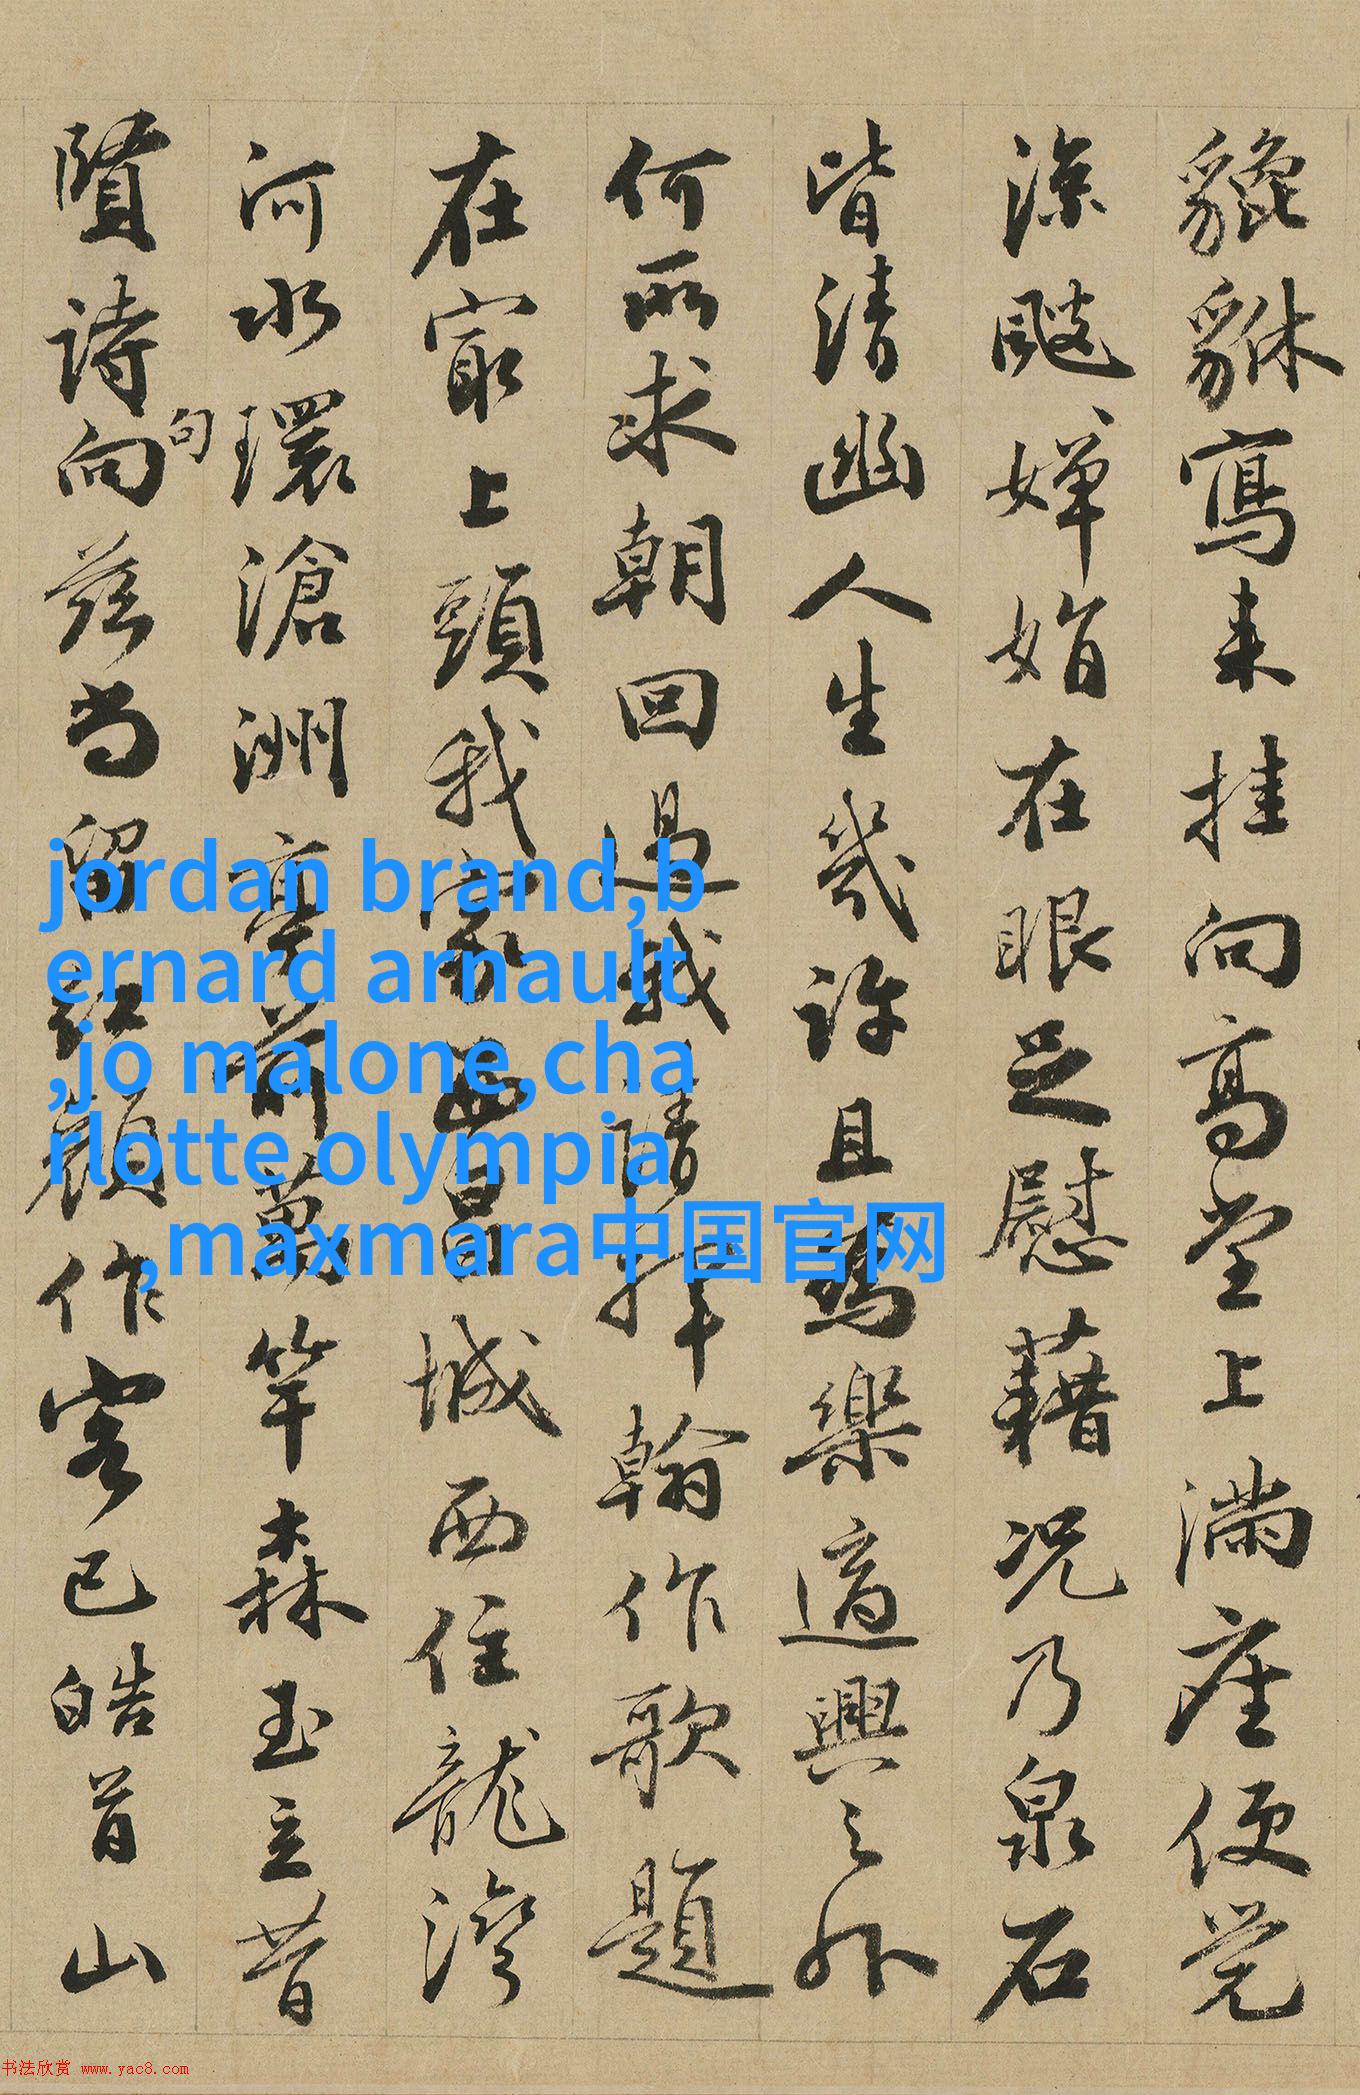 貔貅寫来挂向高堂上滿座便觉
涼颸婵娟在眼足慰藉况乃泉石
皆清幽人生幾許且為樂適興之外
何所求朝回過我請揮翰作歌題
在寂上頭我家西昌城西住龍灣
河水環滄洲亭前萬竿森玉立昔
賢詩向兹尚留紅顔作客已皓首山
句
jordan brand,b
ernard arnault
,jo malone,cha
rlotte olympia
,maxmara中国官网
书法欣赏 www.yac8.com